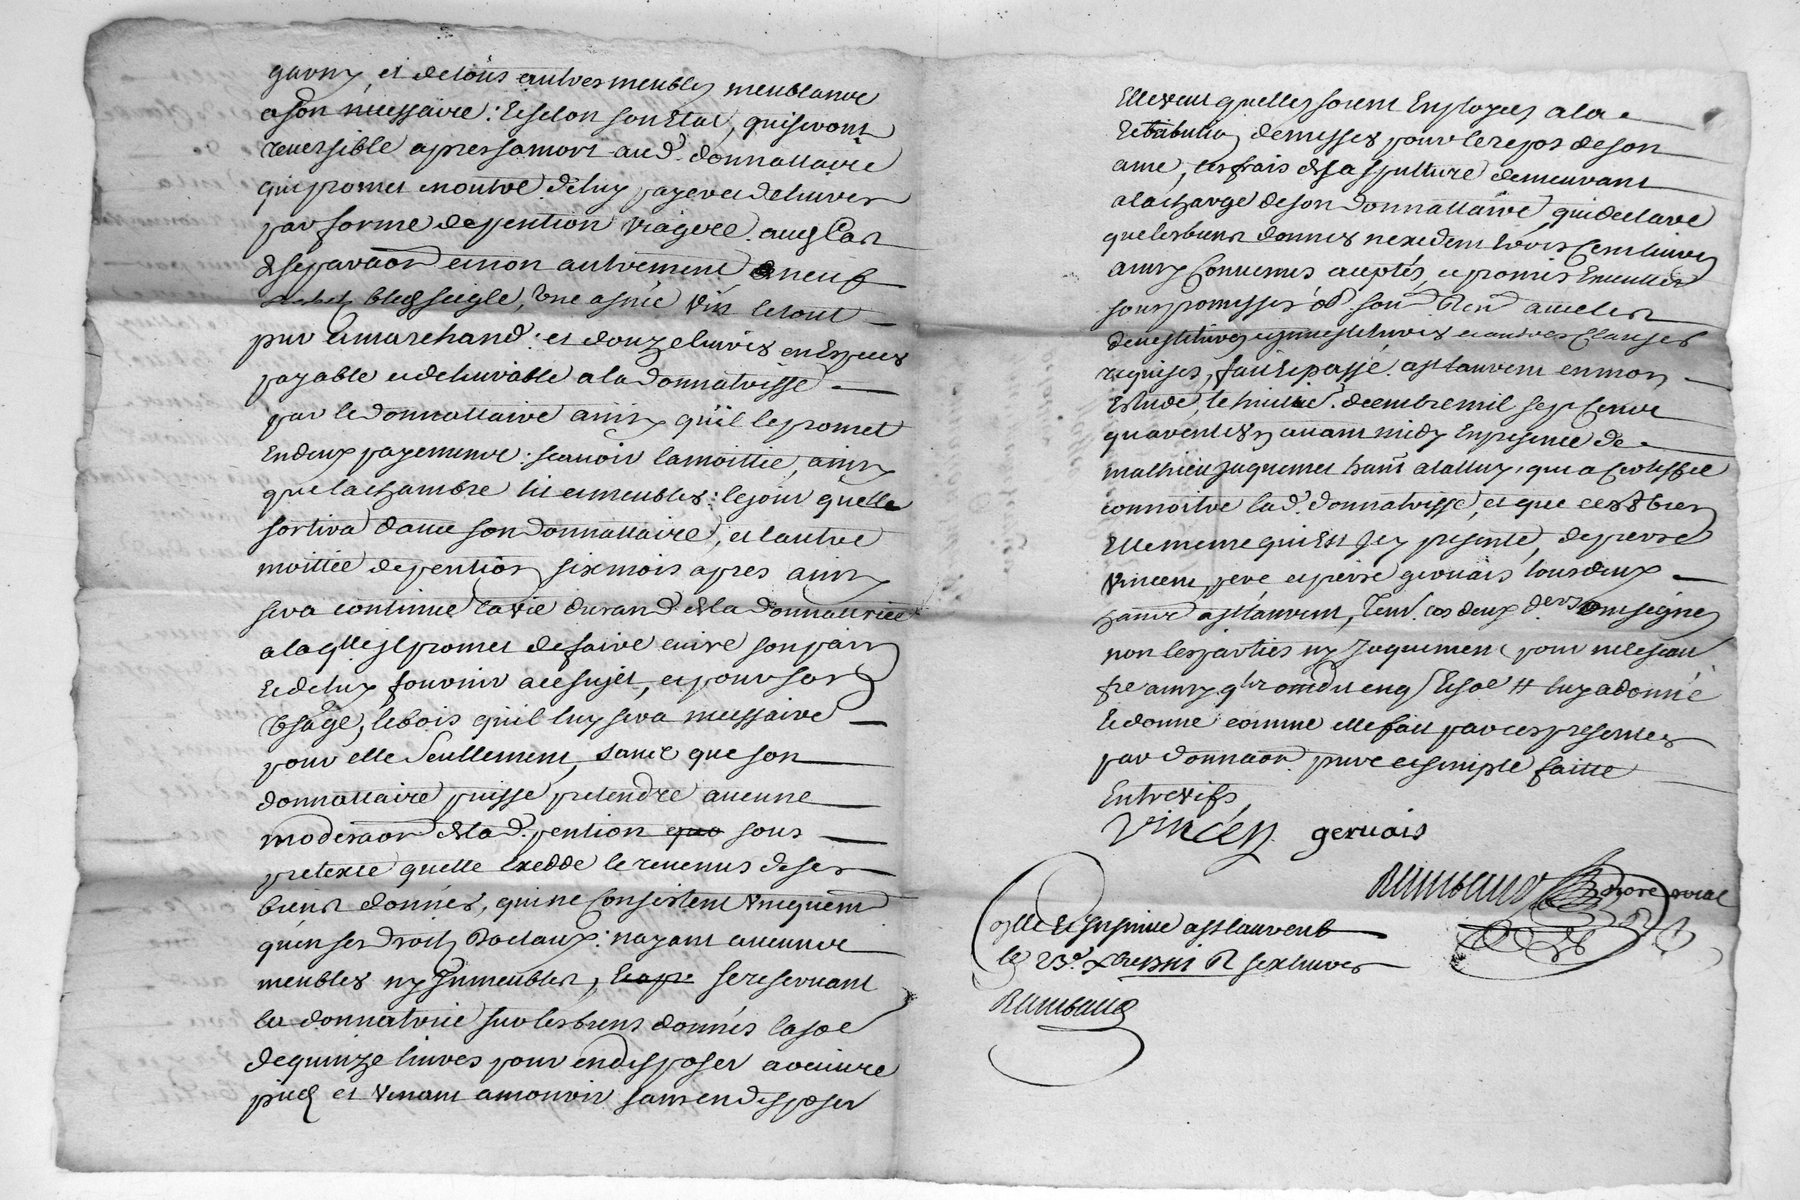 garny, et de tous autres meubles meublance
a son necessaire: Et selon son Etat, qui seront
reversible apres sa mort aud. donnattaire
qui promet en outre de luy payer et delivrer
par forme de pention viagere aud. cas
de separaon et non autrement neuf
bled seigle, Une asnée vin le tout
pur et marchand: et douze livres en Especes
payable et delivrable a la donnatrisse
par le donnattaire ainsy qu'il le promet
En deux payemence. scavoir la moittie, ainsy
que la chambre lit et meubles: le jour quelle
sortira d'avec son donnattaire, et l'autre
moittie de pention six mois apres ainsy
sera continue la vie durand de la donnattrice
a laqlle il promet de faire cuire son pain
Et de luy fournir a ce sujet, et pour son
Usage, le bois qu'il luy sera necessaire
pour elle Seullement, sance que son
donnattaire puisse pretendre aucune
moderaon de lad. pention quo sous
pretexte quelle Excedde le revenus de ses
biens donnés, qui ne Consistent Uniquemt
qu'en ses droits Dotaux: nayant aucunce
meubles ny Immeubles, se reservant
la donnatrice sur les biens donnés la soe
de quinze livres pour en disposer a
pied et Venant a mourir sans en disposer
Elle veut quelles soient Employees a la
Retribution de messes pour le repos de son
ame, les frais de sa sepulture demeurant
a la charge de son donnattaire qui declare
que les biens donnes nexedent trois Cent livres
ainsy Convenus acceptés, et promis Executer
sous promesses obon soumon Renon avec les
devestitures et investitures et autres Clauses
requises, fait Et passé a st laurent en mon
Estude, le huitie decembre mil sept cence
quarente avant midy En presence de
mathieu Jaquemet hant a lattuy, qui a Certiffie
connoitre lad. donnatrisse, et que cest bien
Elle meme qui Est Icy presente, de pierre
Vincent, pere et pierre gervais tous deux
hance a st laurent, Tem. ces deux ders soussignes
non les parties ny Jaquemet pour ne le scavoir
fre ainsy qu'ils ont dit enq Et soe # luy a donné
Et donne comme elle fait par ces presentes
par donnaon pure et simple faitte
Entrevifs,
Vincen gervais
Raimbaud nore royal
Colle Et Insinué a st laurent
le 23e xbre R six livres
Raimbaud